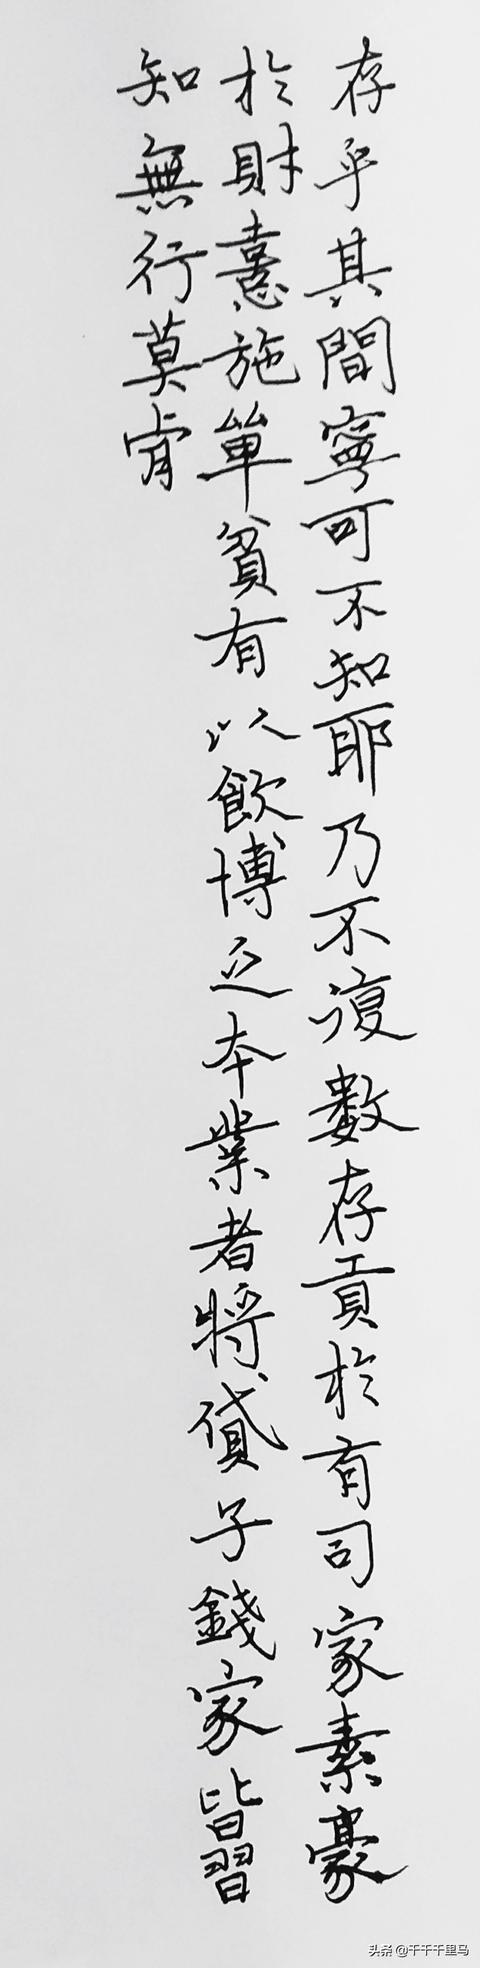 存乎其間寧可不知耶乃不復數存貢於有司家素豪
於財憙施單貧有以飲博亡本業者將貸子錢家皆習
知無行莫肯
头条 @千千千里马